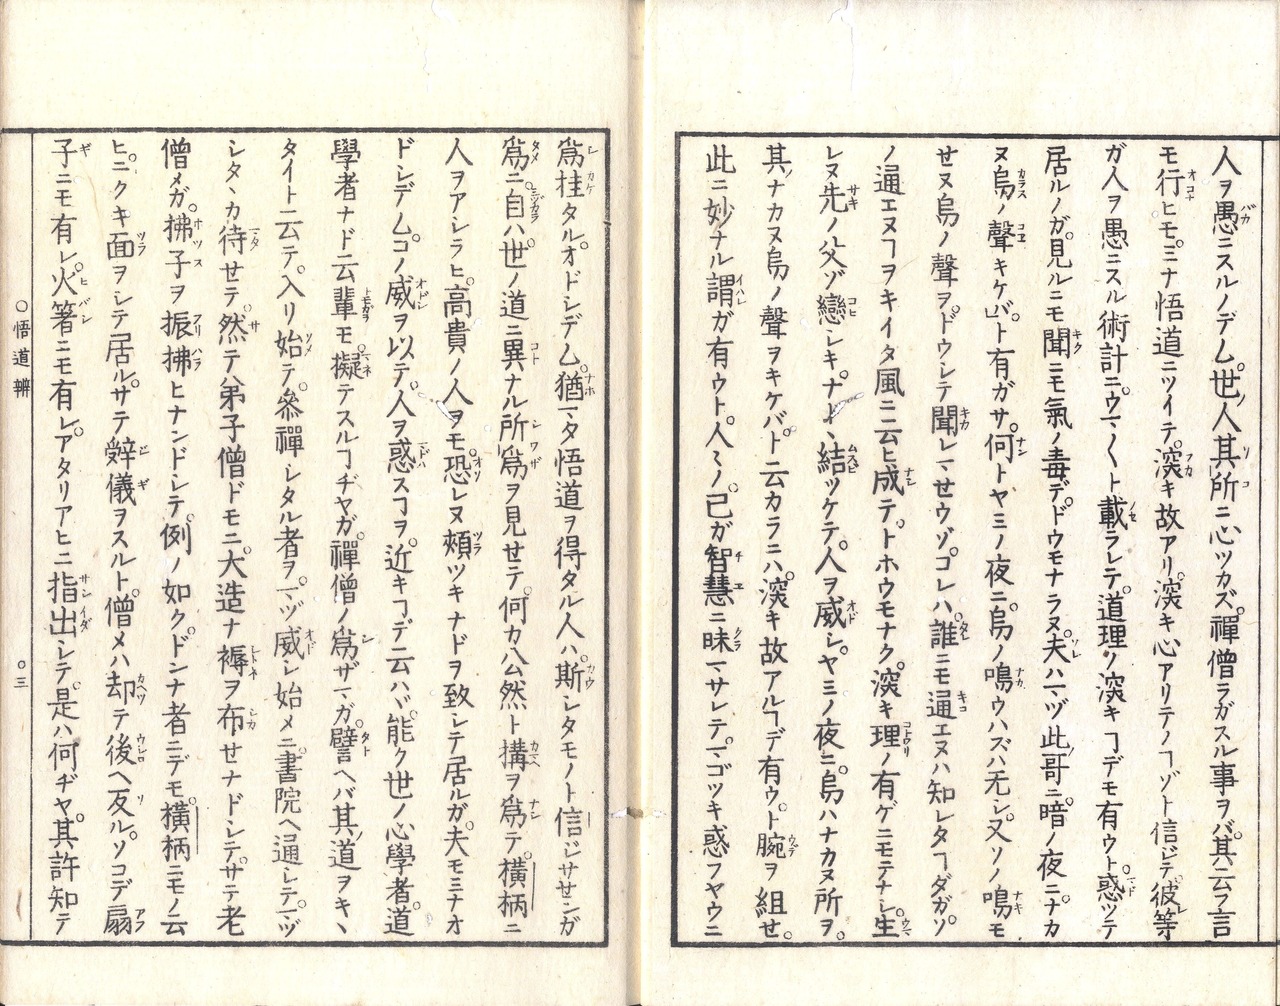 人ヲ愚ニスルノデム。世ノ人其所ニ心ツカズ。禪僧ラガスル事ヲバ。其云フ言
モ行ヒモ。ミナ悟道ニツイテ。深キ故アリ。深キ心アリテノヿゾト信ジテ。彼等
ガ人ヲ愚ニスル術計ニ。ウマ〱ト載ラレテ。道理ノ深キヿデモ有ウト。惑ツテ
居ルノガ。見ルニモ聞ニモ氣ノ毒デ。ドウモナラヌ。夫ハマヅ此ノ哥ニ。暗ノ夜ニ。ナカ
ヌ烏ノ聲キケバ。ト有ガサ。何トヤミノ夜ニ。烏ノ鳴ウハズハ无シ。又ソノ鳴モ
せヌ烏ノ聲ヲ。ドウシテ聞レマせウゾ。コレハ誰ニモ通エヌハ知レタヿダガ。ソ
ノ通エヌヿヲキイタ風ニ云ヒ成テ。トホウモナク。深キ理ノ有ゲニモテナシ。生
レヌ先ノ父ゾ戀シキ。ナドヽ結ツケテ。人ヲ威シ。ヤミノ夜ニ。烏ハナカヌ所ヲ。
其ノナカヌ烏ノ聲ヲキケバ。ト云カラニハ。深キ故アルヿデ有ウト。腕ヲ組せ。
此ニ妙ナル謂ガ有ウト。人〻ノ己ガ智慧ニ昧マサレテ。マゴツキ惑フヤウニ
爲挂タルオドシデム。猶マタ悟道ヲ得タル人ハ。斯シタモノト信ジサせンガ
爲ニ。自ハ世ノ道ニ異ナル所爲ヲ見せテ。何カ公然ト搆ヲ爲テ。橫柄ニ
人ヲアシラヒ。高貴ノ人ヲモ恐レヌ頰ツキナドヲ致シテ居ルガ。夫モミナオ
ドシデム。コノ威ヲ以テ。人ヲ惑スコヲ。近キヿデ云ハバ。能ク世ノ心學者道
學者ナド云輩モ擬テスルヿヂヤガ。禪僧ノ爲ザマガ。譬ヘバ其ノ道ヲキヽ
タイト云テ。入リ始テ。參禪シタル者ヲ。マヅ威シ始メニ。書院ヘ通シテ。マヅ
シタヽカ待せテ。然テハ弟子僧ドモニ。大造ナ褥ヲ布せナドシテ。サテ老
僧メガ。拂子ヲ振拂ヒナンドシテ。例ノ如ク。ドンナ者ニデモ。橫柄ニモノ云
ヒ。ニクキ面ヲシテ居ル。サテ辭儀ヲスルト。僧メハ却テ後ヘ反ル。ソコデ扇
子ニモ有レ。火箸ニモ有レ。アタリアヒニ。指出シテ。是ハ何ヂヤ。其許知テ
○悟道辨
○三